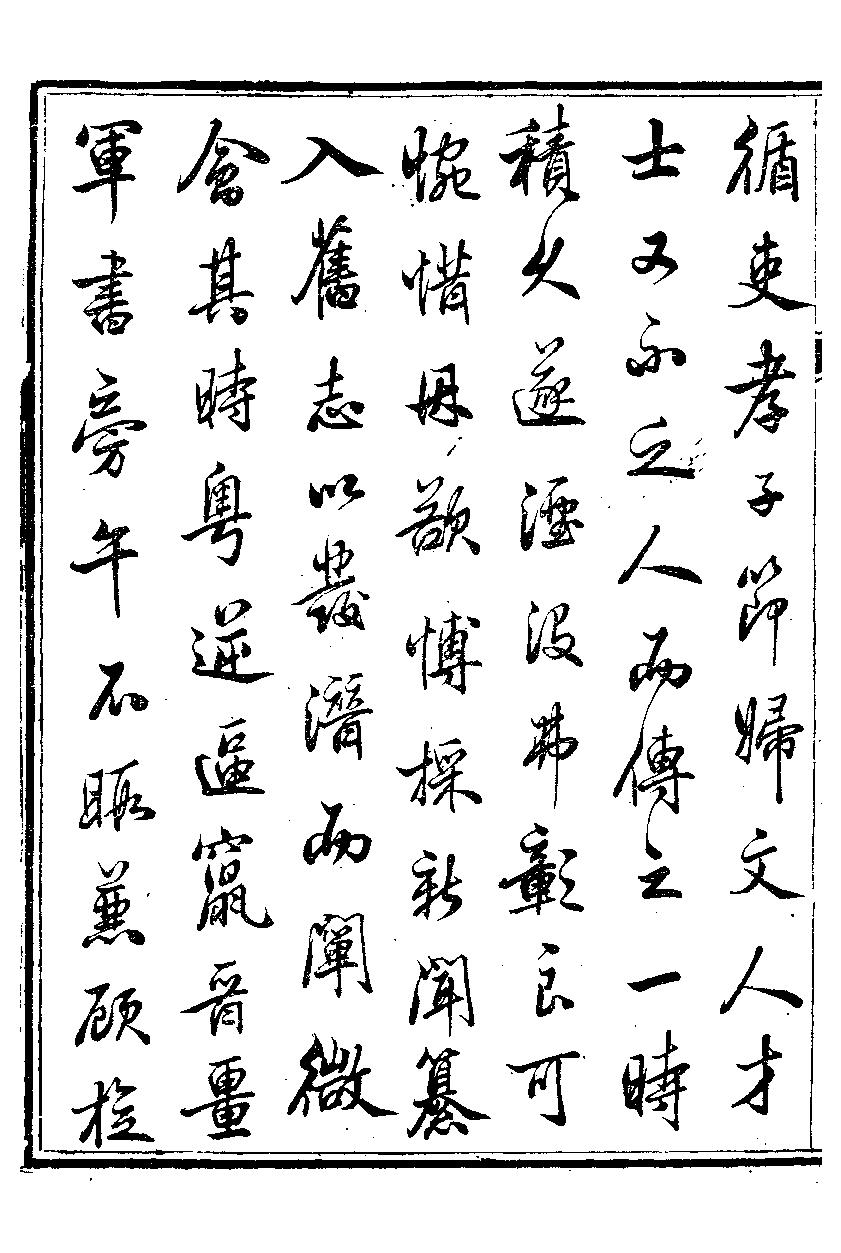 循吏孝子節婦文人才
士又不乏人而傳之一時
積久遂湮沒弗彰良可
惋惜毋欲博採新聞纂
入舊志以發潛而闡微
會其時粵逆逼竄晉疆
軍書旁午不暇兼顧於